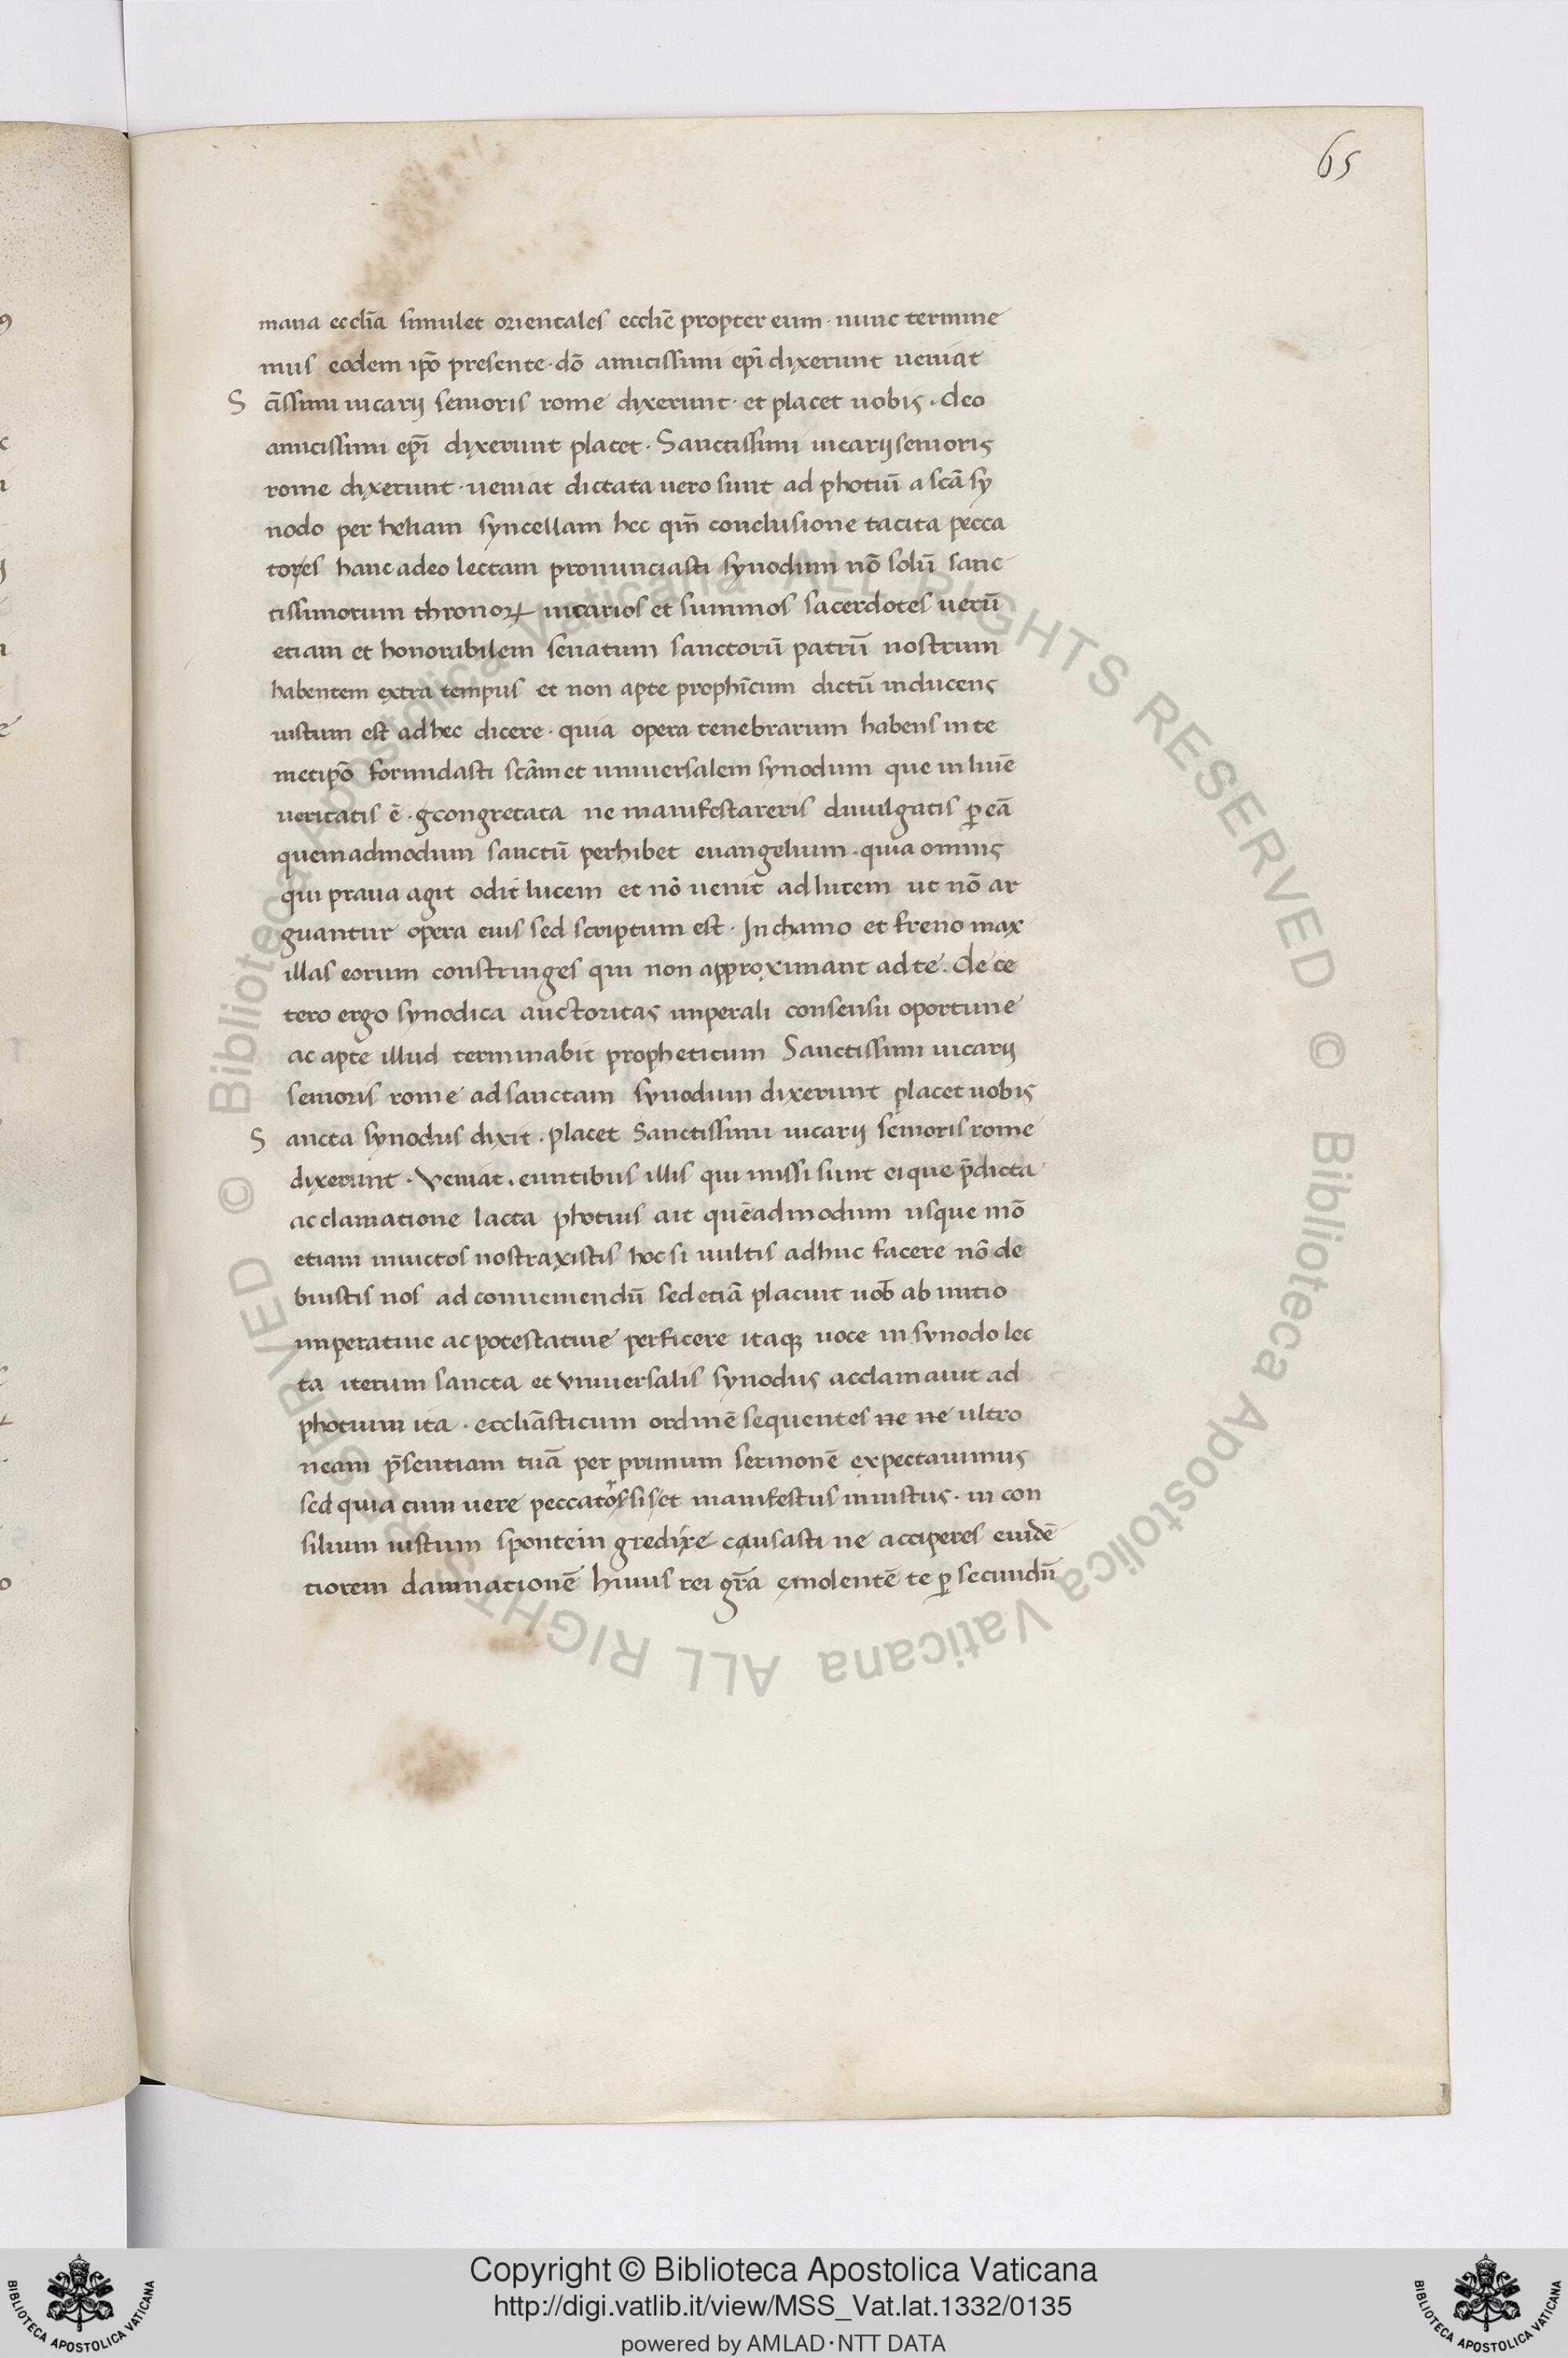 65
mana ecclīa simulet orientales ecclīe propter eum · nunc termine
mus eodem ip̄o presente · dō amicissimi ep̄i dixerunt ueniat
S c̄issimi uicarij senioris rome dixerunt · et placet uobis · deo
amicissimi ep̄i dixerunt placet · Sanctissimi uicarij senioris
rome dixerunt · ueniat dictata uero sunt ad photiū a scā sy
nodo per heliam syncellam hec qm̄ conclusione tacita pecca
tores hanc adeo lectam pronunciasti synodum nō solū sanc
tissimorum thronoꝝ uicarios et summos sacerdotes uerū
etiam et honorabilem senatum sanctorū patrū nostrum
habentem extra tempus et non apte proph̄icum dictū inducens
iustum est ad hec dicere · quia opera tenebrarum habens in te
metip̄o formidasti scām et uniuersalem synodum que in luīe
ueritatis ē · gcongretata ne manifestareris diuulgatis ꝑ eā
quemadmodum sanctū perhibet euangelium · quia omnis
qui praua agit odit lucem et nō uenit ad lucem ut nō ar
guantur opera eius sed scriptum est · In chamo et freno max
illas eorum constringes qui non approximant ad te · de ce
tero ergo synodica auctoritas imperali consensu oportune
ac apte illud terminabit propheticum Sanctissimi uicarij
senioris rome ad sanctam synodum dixerunt placet uobis
S ancta synodus dixit · placet Sanctissimi uicarij senioris rome
dixerunt · Veniat · euntibus illis qui missi sunt eique p̄dicta
acclamatione lacta photius ait quēadmodum usque mō
etiam inuictos nos traxistis hoc si uultis adhuc facere nō de
buistis nos ad conueniendū sed etiā placuit uob̄ ab initio
imperatiue ac potestatiue perficere itaqꝫ uoce in synodo lec
ta iterum sancta et vniuersalis synodus acclamauit ad
photium ita · eccliāsticum ordinē sequentes ne ne ultro
neam p̄sentiam tuā per primum sermonē expectauimus
sed quia cum uere peccator sis et manifestus iniustus · in con
silium iustum spontein gredire causasti ne acciperes euidē
tiorem damnationē huius rei gr̄a emolentē te ꝑ secundū
Copyright © Biblioteca Apostolica Vaticana
http://digi.vatlib.it/view/MSS_Vat.lat.1332/0135
powered by AMLAD·NTT DATA